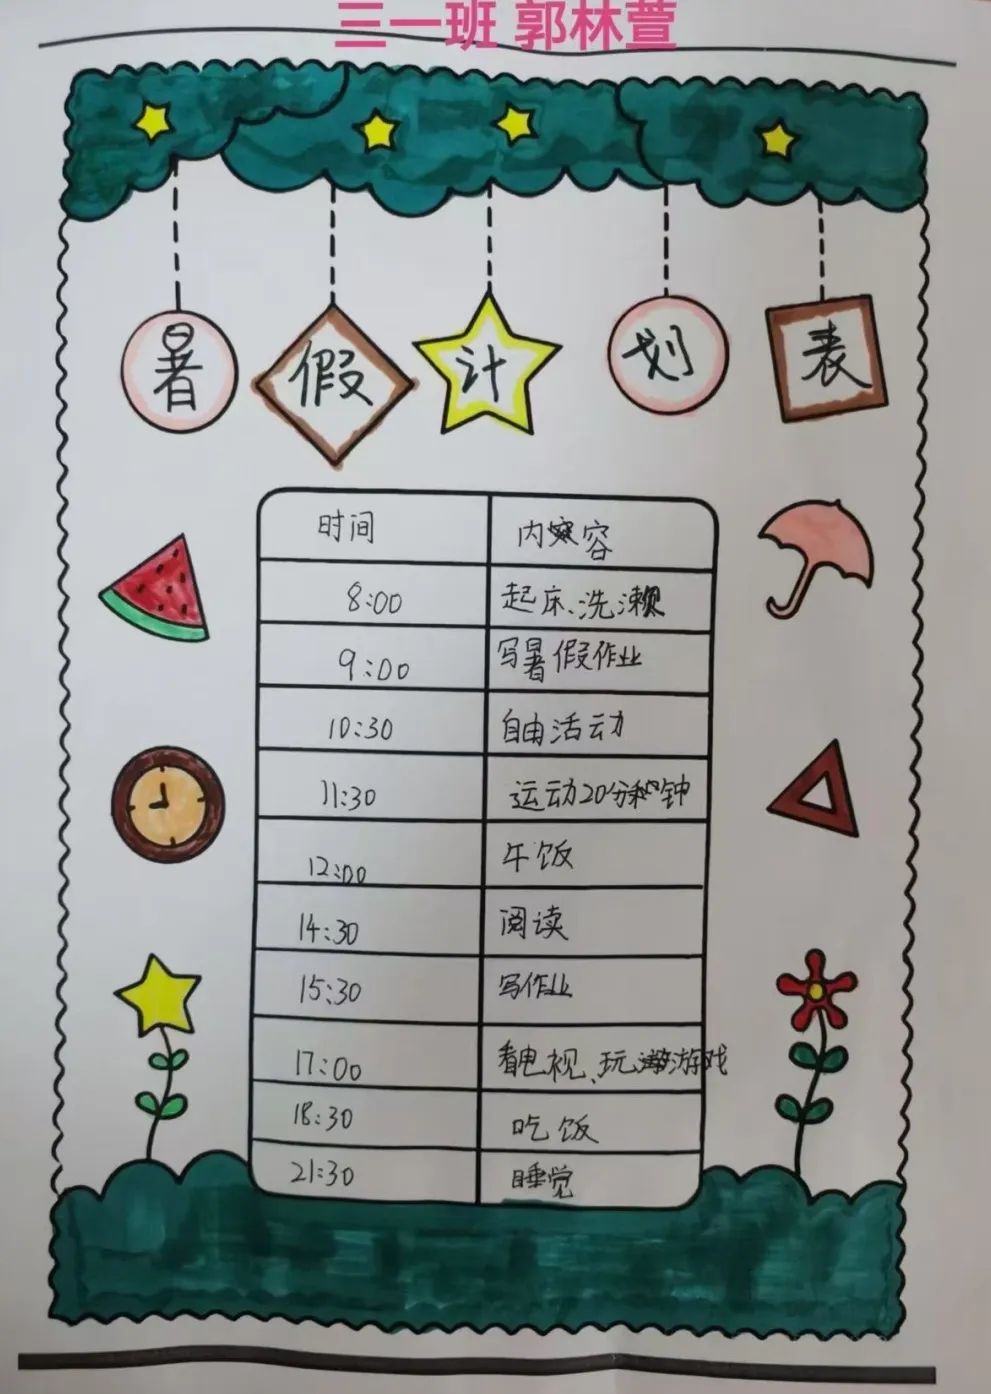 三一班 郭林萱
暑假计划表
时间 内容
8:00 起床、洗濑
9:00 写暑假作业
10:30 自由活动
11:30 运动20分钟
12:00 午饭
14:30 阅读
15:30 写作业
17:00 看电视、玩游戏
18:30 吃饭
21:30 睡觉